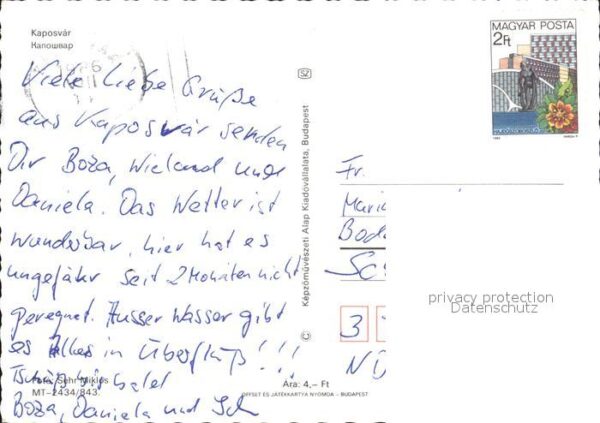 Kaposvár
Капошвар
MAGYAR POSTA
2Ft
Viele liebe Grüße
aus Kaposvár senden
Dir Boza, Wieland und
Daniela. Das Wetter ist
wunderbar, hier hat es
ungefähr seit 2 Monaten nicht
geregnet. Ausser Wasser gibt
es Alles in Überfluß!!!
Tschüß bis bald
Boza, Daniela und
Foto: Sehr Miklós
MT-2434/843.
SZ
Képzőművészeti Alap Kiadóvállalata, Budapest
Ára: 4,– Ft
OFFSET ÉS JÁTÉKKÁRTYA NYOMDA – BUDAPEST
Fr.
3
privacy protection
Datenschutz